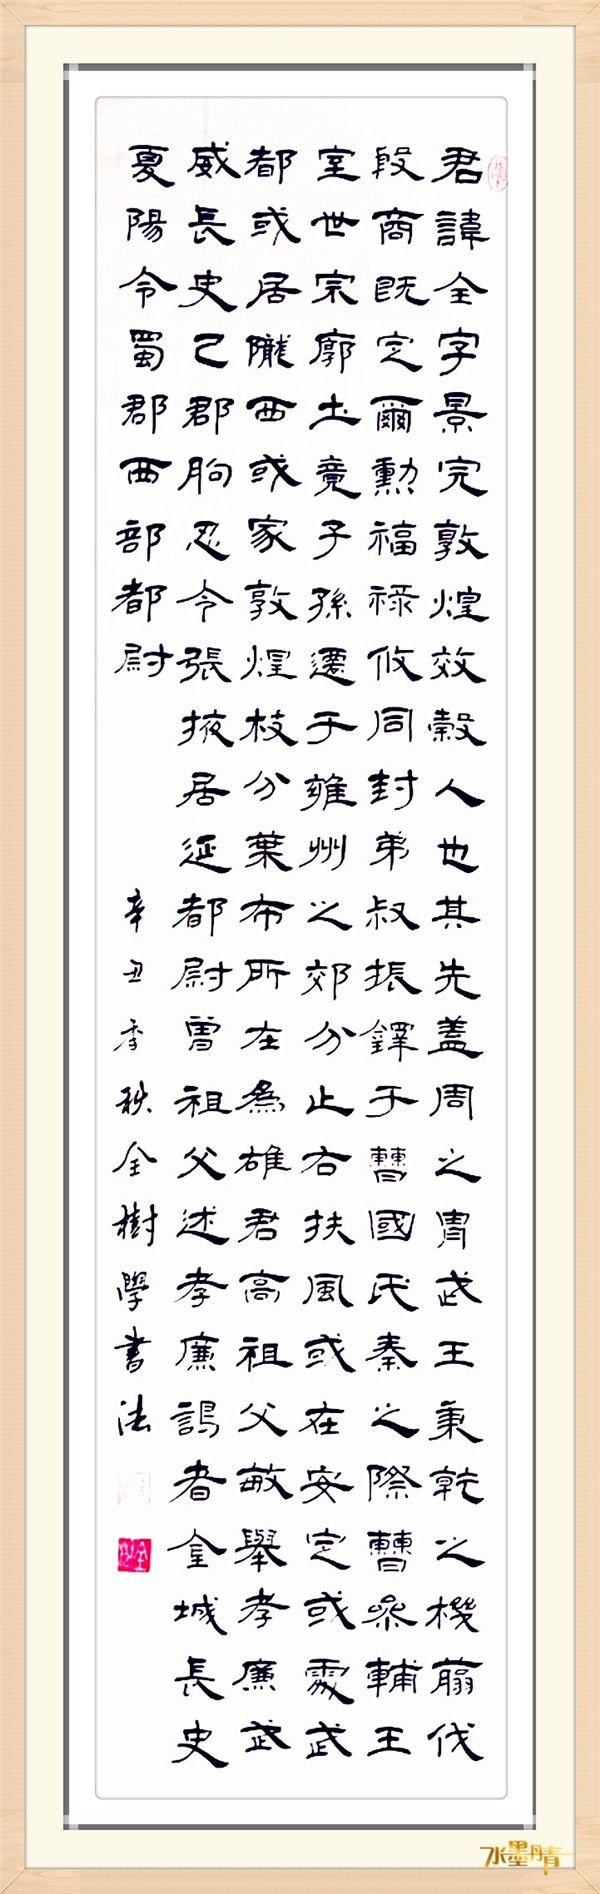 君諱全字景完敦煌效穀人也其先蓋周之胄武王秉乾之機翦伐
段商既定爾勳福祿攸同封弟叔振鐸于曹國氏秦之際曹參輔王
室世宗廓土竟子孫遷于雍州之郊分止右扶風或在安定或處武
都或居隴西或家敦煌枝分葉布所在為雄君高祖父敏舉孝廉武
威長史己郡朐忍令張掖居延都尉曾祖父述孝廉謁者金城長史
夏陽令蜀郡西部都尉
辛丑季秋全樹學書法
水墨丹青